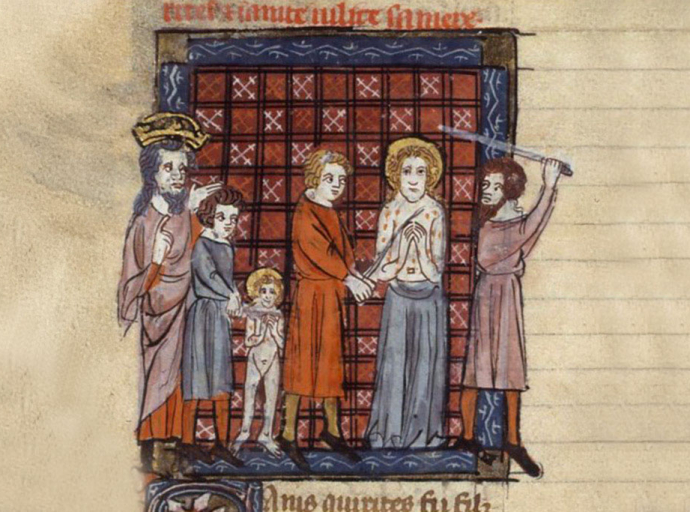 sainte iulite sa mere.
ains quirites fu filz